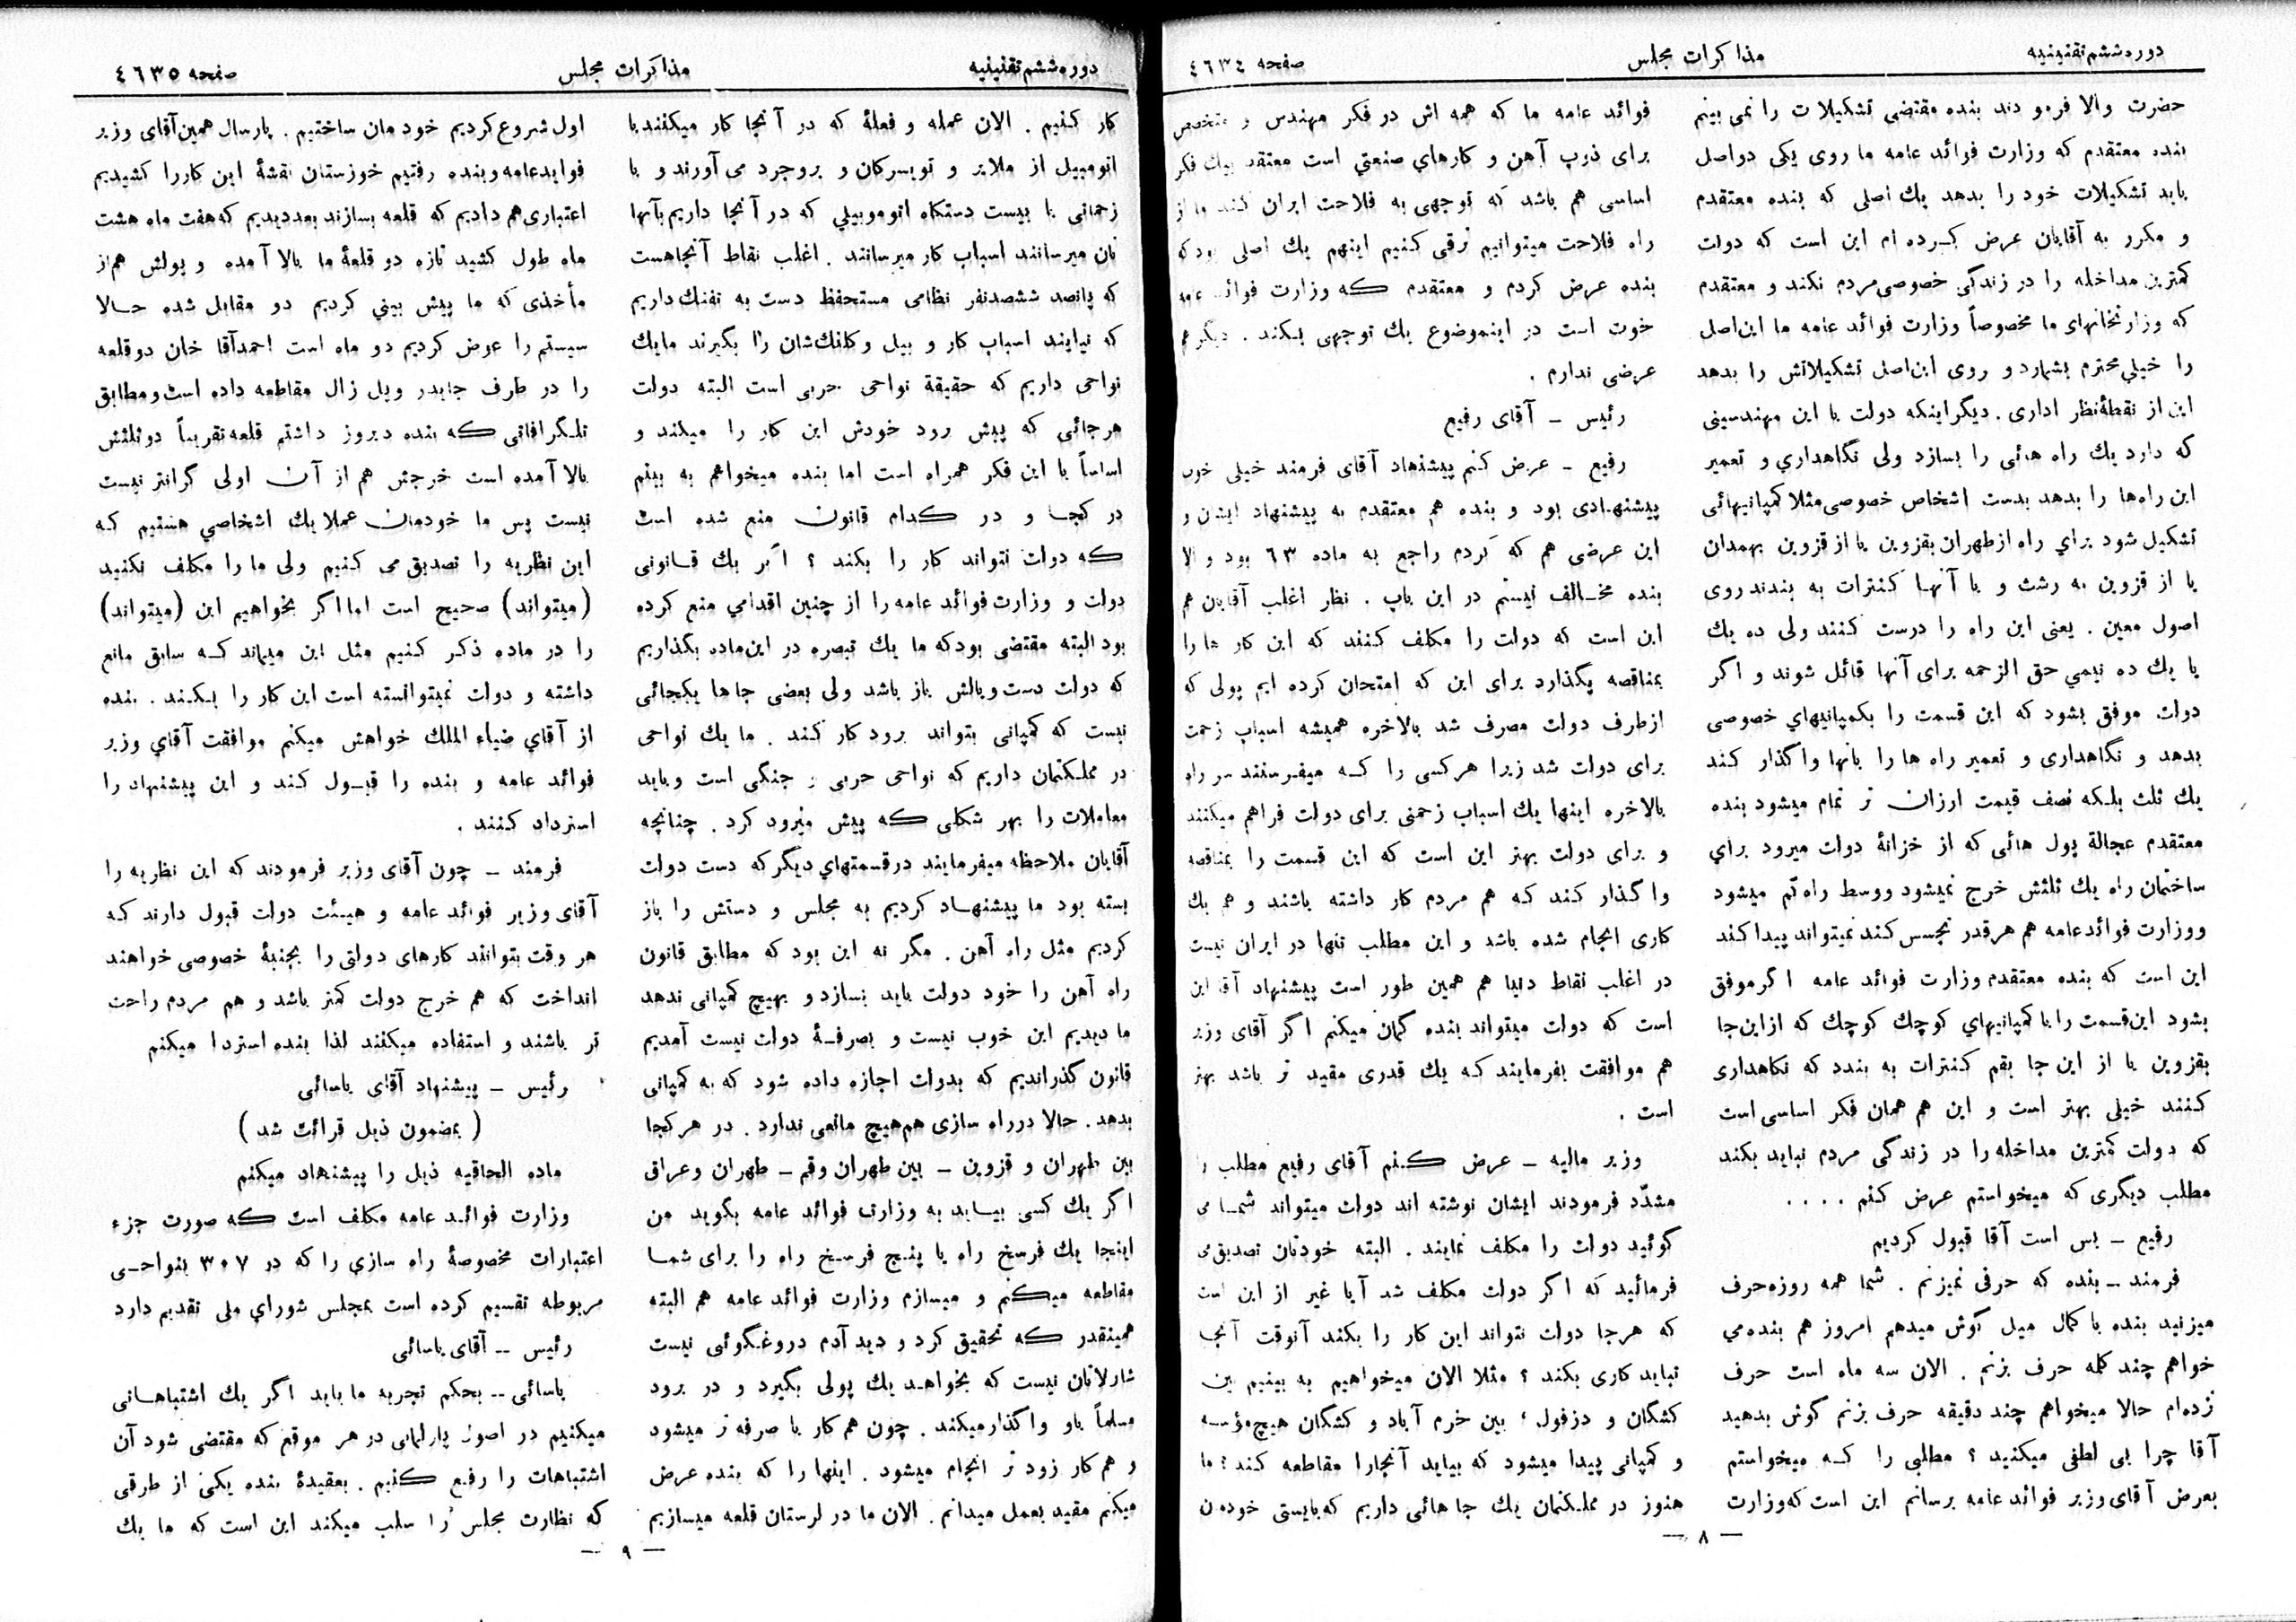 دوره ششم تقنینیه
مذاکرات مجلس
صفحه ٤٦٣٤
حضرت والا فرمودند بنده مقتضی تشکیلات را نمی بینم
بنده معتقدم که وزارت فوائد عامه ما روی یکی دو اصل
باید تشکیلات خود را بدهد یك اصلی که بنده معتقدم
و مکرر به آقایان عرض کرده ام این است که دولت
کمترین مداخله را در زندگی خصوصی مردم نکند و معتقدم
که وزارتخانهای ما مخصوصاً وزارت فوائد عامه ما این اصل
را خیلی محترم بشمارد و روی این اصل تشکیلاتش را بدهد
این از نقطۀ نظر اداری . دیگر اینکه دولت با این مهندسینی
که دارد یك راه هائی را بسازد ولی نگاهداري و تعمیر
این راه‌ها را بدهد بدست اشخاص خصوصی مثلا کمپانیهائی
تشکیل شود براي راه از طهران بقزوین یا از قزوین بهمدان
یا از قزوین به رشت و با آنها کنترات به بندند روی
اصول معین . یعنی این راه را درست کنند ولی ده یك
یا یك ده نیمي حق الزحمه برای آنها قائل شوند و اگر
دولت موفق بشود که این قسمت را بکمپانیهاي خصوصی
بدهد و نگاهداری و تعمیر راه ها را بآنها واگذار کند
یك ثلث بلکه نصف قیمت ارزان تر تمام میشود بنده
معتقدم عجالة پول هائی که از خزانۀ دولت میرود براي
ساختمان راه یك ثلثش خرج نمیشود و وسط راه گم میشود
ووزارت فوائد عامه هم هر قدر تجسس کند نمیتواند پیدا کند
این است که بنده معتقدم وزارت فوائد عامه اگر موفق
بشود این قسمت را با کمپانیهاي کوچك کوچك که از این جا
بقزوین یا از این جا بقم کنترات به بندد که نگاهداری
کنند خیلی بهتر است و این هم همان فکر اساسی است
که دولت کمترین مداخله را در زندگی مردم نباید بکند
مطلب دیگری که میخواستم عرض کنم . . . .
رفیع ـ بس است آقا قبول کردیم
فرمند ـ بنده که حرفی نمیزنم . شما همه روزه حرف
میزنید بنده با کمال میل گوش میدهم امروز هم بنده می
خواهم چند کلمه حرف بزنم . الان سه ماه است حرف
نزده‌ام حالا میخواهم چند دقیقه حرف بزنم گوش بدهید
آقا چرا بی لطفی میکنید ؟ مطلبی را که میخواستم
بعرض آقای وزیر فوائد عامه برسانم این است که وزارت
فوائد عامه ما که همه اش در فکر مهندس و متخصص
برای ذوب آهن و کارهاي صنعتي است معتقد بیك فکر
اساسی هم باشد که توجهی به فلاحت ایران کند ما از
راه فلاحت میتوانیم ترقی کنیم اینهم یك اصلی بود که
بنده عرض کردم و معتقدم که وزارت فوائد عامه
خوب است در اینموضوع یك توجهی بکند . دیگر هم
عرضی ندارم .
رئیس ـ آقای رفیع
رفیع ـ عرض کنم پیشنهاد آقای فرمند خیلی خوب
پیشنهادی بود و بنده هم معتقدم به پیشنهاد ایشان و
این عرضی هم که کردم راجع به ماده ٦٣ بود والا
بنده مخالف نیستم در این باب . نظر اغلب آقایان هم
این است که دولت را مکلف کنند که این کار ها را
بمناقصه بگذارد برای این که امتحان کرده ایم پولی که
از طرف دولت مصرف شد بالاخره همیشه اسباب زحمت
برای دولت شد زیرا هر کسی را که میفرستند سر راه
بالاخره اینها یك اسباب زحمتی برای دولت فراهم میکنند
و برای دولت بهتر این است که این قسمت را بمناقصه
واگذار کند که هم مردم کار داشته باشند و هم یك
کاری انجام شده باشد و این مطلب تنها در ایران نیست
در اغلب نقاط دنیا هم همین طور است پیشنهاد آقا این
است که دولت میتواند بنده گمان میکنم اگر آقای وزیر
هم موافقت بفرمایند که یك قدری مقید تر باشد بهتر
است .
وزیر مالیه ـ عرض کنم آقای رفیع مطلب را
مشدّد فرمودند ایشان نوشته اند دولت میتواند شما می
گوئید دولت را مکلف نمایند . البته خودتان تصدیق می
فرمائید که اگر دولت مکلف شد آیا غیر از این است
که هرجا دولت نتواند این کار را بکند آنوقت آنجا
نباید کاری بکند ؟ مثلا الان میخواهیم به بینیم بین
کشگان و دزفول ، بین خرم آباد و کشگان هیچ مؤسسه
و کمپانی پیدا میشود که بیاید آنجارا مقاطعه کند ؟ ما
هنوز در مملکتمان یك جاهائی داریم که بایستی خودمان
— ٨ —
دوره ششم تقنینیه
مذاکرات مجلس
صفحه ٤٦٣٥
کار کنیم . الان عمله و فعلۀ که در آنجا کار میکنند با
اتومبیل از ملایر و تویسرکان و بروجرد می آورند و با
زحماتی با بیست دستگاه اتوموبیلي که در آنجا داریم بآنها
نان میرسانند اسباب کار میرسانند . اغلب نقاط آنجاهست
که پانصد ششصد نفر نظامی مستحفظ دست به تفنك داریم
که نیایند اسباب کار و بیل و کلنك‌شان را بگیرند ما یك
نواحی داریم که حقیقة نواحی حربی است البته دولت
هرجائی که پیش برود خودش این کار را میکند و
اساساً با این فکر همراه است اما بنده میخواهم به بینم
در کجا و در کدام قانون منع شده است
که دولت نتواند کار را بکند ؟ اگر یك قانونی
دولت و وزارت فوائد عامه را از چنین اقدامي منع کرده
بود البته مقتضی بود که ما یك تبصره در این ماده بگذاریم
که دولت دست و بالش باز باشد ولی بعضی جا ها یکجائی
نیست که کمپانی بتواند برود کار کند . ما یك نواحی
در مملکتمان داریم که نواحی حربی و جنگی است و باید
معاملات را بهر شکلی که پیش میرود کرد . چنانچه
آقایان ملاحظه میفرمایند در قسمتهاي دیگر که دست دولت
بسته بود ما پیشنهاد کردیم به مجلس و دستش را باز
کردیم مثل راه آهن . مگر نه این بود که مطابق قانون
راه آهن را خود دولت باید بسازد و بهیچ کمپانی ندهد
ما دیدیم این خوب نیست و بصرفۀ دولت نیست آمدیم
قانون گذراندیم که بدولت اجازه داده شود که به کمپانی
بدهد . حالا در راه سازی هم هیچ مانعی ندارد . در هر کجا
بین طهران و قزوین ـ بین طهران وقم ـ طهران وعراق
اگر یك کسی بیاید به وزارت فوائد عامه بگوید من
اینجا یك فرسخ راه یا پنج فرسخ راه را برای شما
مقاطعه میکنم و میسازم وزارت فوائد عامه هم البته
همینقدر که تحقیق کرد و دید آدم دروغگوئی نیست
شارلاتان نیست که بخواهد یك پولی بگیرد و در برود
مسلماً باو واگذار میکند . چون هم کار با صرفه تر میشود
و هم کار زود تر انجام میشود . اینها را که بنده عرض
میکنم مقید بعمل میدانم . الان ما در لرستان قلعه میسازیم
اول شروع کردیم خودمان ساختیم . پارسال همین آقای وزیر
فوایدعامه و بنده رفتیم خوزستان نقشۀ این کاررا کشیدیم
اعتباری هم دادیم که قلعه بسازند بعد دیدیم که هفت ماه هشت
ماه طول کشید تازه دو قلعۀ ما بالا آمده و پولش هم از
مأخذی که ما پیش بیني کردیم دو مقابل شده حالا
سیستم را عوض کردیم دو ماه است احمدآقا خان دو قلعه
را در طرف جایدر و پل زال مقاطعه داده است و مطابق
تلگرافاتی که بنده دیروز داشتم قلعه تقریباً دو ثلثش
بالا آمده است خرجش هم از آن اولی گرانتر نیست
نیست پس ما خودمان عملا یك اشخاصي هستیم که
این نظریه را تصدیق می کنیم ولی ما را مکلف نکنید
(میتواند) صحیح است اما اگر بخواهیم این (میتواند)
را در ماده ذکر کنیم مثل این میماند که سابق مانع
داشته و دولت نمیتوانسته است این کار را بکند . بنده
از آقاي ضیاء الملك خواهش میکنم موافقت آقاي وزیر
فوائد عامه و بنده را قبول کند و این پیشنهاد را
استرداد کنند .
فرمند ـ چون آقای وزیر فرمودند که این نظریه را
آقای وزیر فوائد عامه و هیئت دولت قبول دارند که
هر وقت بتوانند کارهای دولتی را بجنبۀ خصوصی خواهند
انداخت که هم خرج دولت کمتر باشد و هم مردم راحت
تر باشند و استفاده میکنند لذا بنده استردا میکنم
رئیس ـ پیشنهاد آقای یاسائی
( بمضمون ذیل قرائت شد )
ماده الحاقیه ذیل را پیشنهاد میکنم
وزارت فوائد عامه مکلف است که صورت جزء
اعتبارات مخصوصۀ راه سازي را که در ٣٠٧ بنواحی
مربوطه تقسیم کرده است بمجلس شوراي ملی تقدیم دارد
رئیس ــ آقای یاسائی
یاسائی ــ بحکم تجربه ما باید اگر یك اشتباهاتی
میکنیم در اصول پارلمانی در هر موقع که مقتضی شود آن
اشتباهات را رفع کنیم . بعقیدۀ بنده یکی از طرقی
که نظارت مجلس را سلب میکند این است که ما یك
— ٩ —